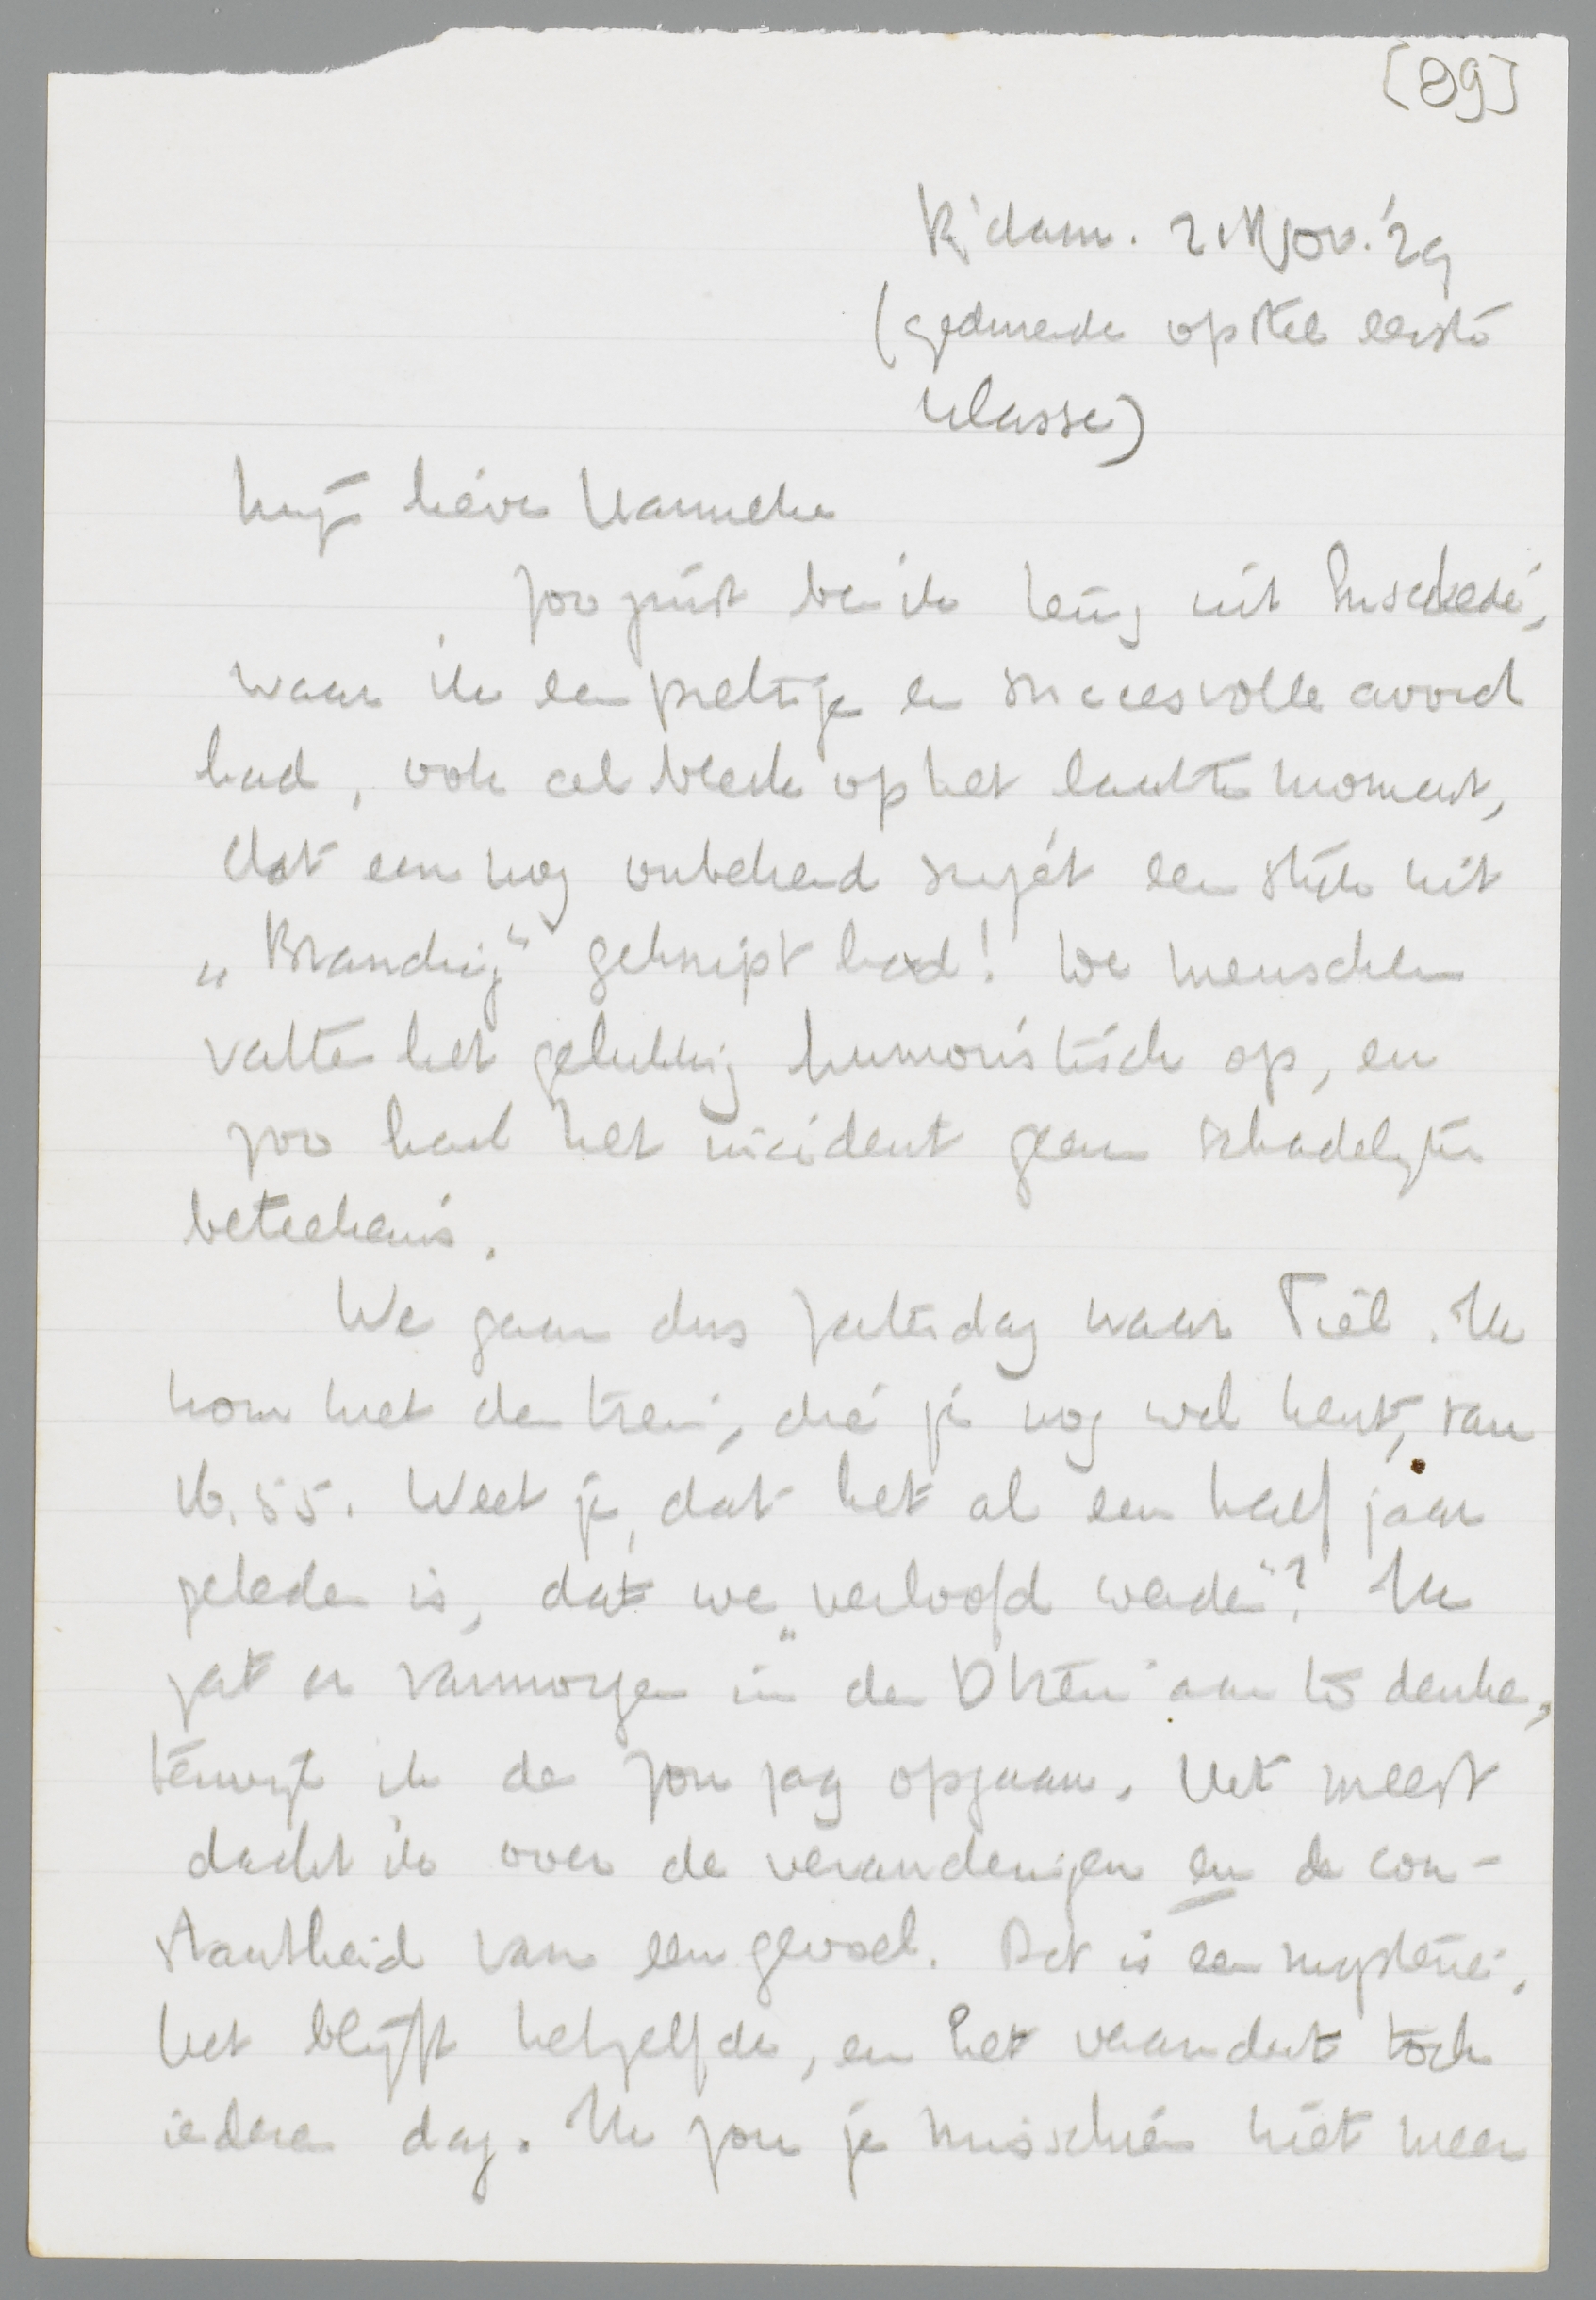 [89]
R'dam. 21 Nov. '29
(gedurende opstel eerste
klasse)
Mijn lieve Hanneke
Zoo juist ben ik terug uit Enschedé,
waar ik een prettige en succesvolle avond
had, ook al bleek op het laatste moment,
dat een nog onbekend sujet een stuk uit
„Branding" geknipt had! De menschen
vatten het gelukkig humoristisch op, en
zoo had het incident geen schadelijke
beteekenis.
We gaan dus Zaterdag naar Tiel. Ik
kom met den trein, die je nog wel kent, van
16.55. Weet je, dat het al een half jaar
geleden is, dat we „verloofd werden"? Ik
zat er vanmorgen in den D trein aan te denken,
terwijl ik de zon zag opgaan. Het meest
dacht ik over de veranderingen en de con-
stantheid van een gevoel. Dat is een mysterie.
Het blijft hetzelfde, en het verandert toch
iederen dag. Ik zou je misschien niet meer